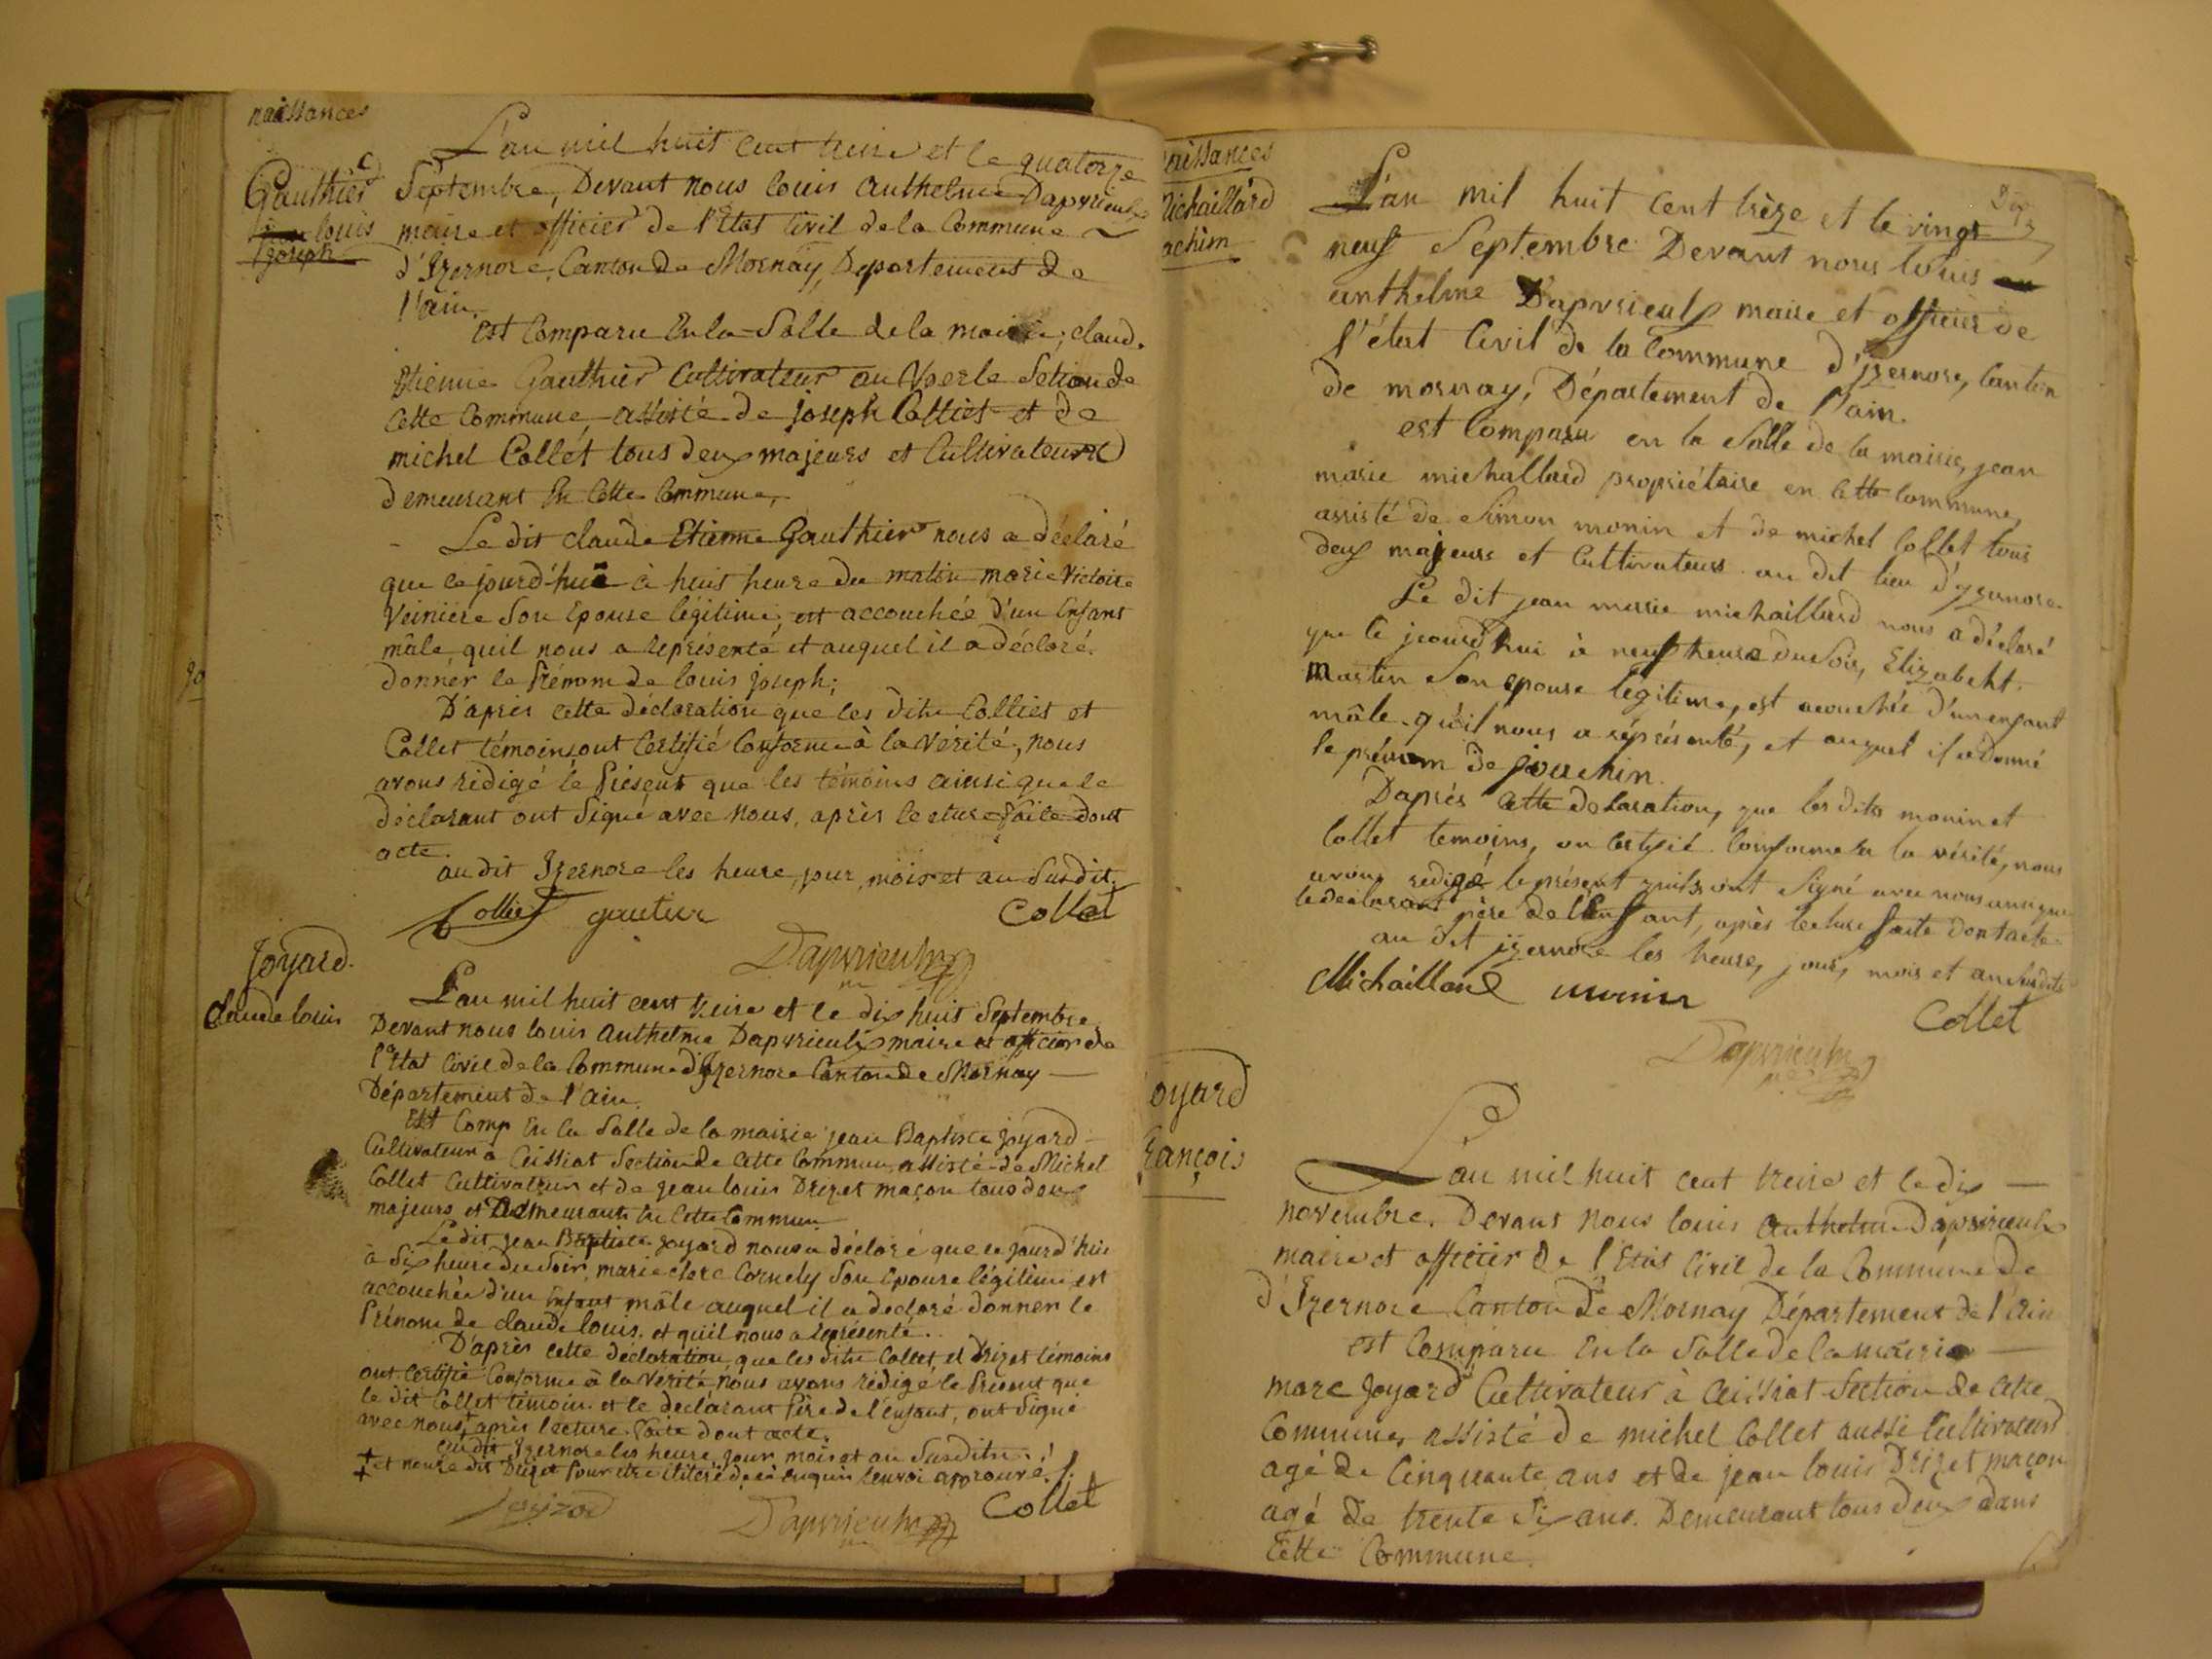 naissances
Gauthier
louis
joseph
L'an mil huit cent treize et le quatorze
Septembre, Devant nous louis authelme Dapvrieulx
maire et officier de l'Etat Civil de la Commune
d'Izernore, Canton de Mornay, Departement de
l'ain.
Est Comparu En la Salle de la mairie, claude
Etienne Gauthier Cultivateur au Voerle Setion de
Cette Commune, assisté de joseph Colliet et de
michel Collet tous deux majeurs et Cultivateurs
demeurant En Cette Commune,
Le dit claude Etienne Gauthier nous a déclaré
que ce jourd'hui à huit heure du matin marie Victoire
Veiniere Son Epouse légitime, est accouchée d'un Enfant
mâle, quil nous a représenté et auquel il a déclaré
donner le Prénom de louis joseph;
D'après cette déclaration que les dits Colliet et
Collet témoins, ont Certifié Conforme à la Verité, nous
avons rédigé le Présent que les témoins ainsi que le
déclarant ont Signé avec Nous, après lecture faite dont
acte.
au dit Izernore les heure, jour, mois et an Susdit.
Colliet gautier Collet
Dapvrieulx
Joyard
Claude louis
L'an mil huit cent treize et le dix huit Septembre
Devant nous louis Authelme Dapvrieulx maire et officier de
l'Etat Civil de la Commune d'Izernore Canton de Mornay
Département de l'Ain.
Est Comp En la Salle de la mairie jean Baptiste joyard
Cultivateur à Ceissiat Section de Cette Commun, assisté de Michel
Collet Cultivateur et de jean louis Drizet maçon tous deux
majeurs et Demeurant En Cette Commun
Le dit jean Baptiste joyard nous a déclaré que ce jourd'hui
à Six heure du Soir, marie clere Cornely Son Epouse légitime est
accouchée d'un Enfant mâle auquel il a declaré donner le
Prénom de claude louis. et qu'il nous a représenté.
D'après cette déclaration, que les dits Collet, et Drizet témoins
ont Certifié Conforme à la Vérité nous avons rédigé le Présent que
le dit Collet témoin et le declarant Père de l'enfant, ont Signé
avec nous, après lecture faite dont acte.
au dit Izernore les heure, jour mois et an Susdits.
Dapvrieulx Collet
aissances
Michaillard
achim
L'an mil huit cent trèze et le vingt
neuf Septembre Devant nous louis
anthelme Dapvrieulx maire et officier de
l'état Civil de la Commune d'jzernore, Canton
de mornay, Département de l'ain.
est Comparu en la Salle de la mairie, jean
marie michallard propriétaire en Cette Commune,
assisté de Simon monin et de michel Collet tous
deux majeurs et Cultivateurs au dit lieu d'yzernore.
Le dit jean marie michaillard nous a déclaré
que le jourd'hui à neuf heure du Soir, Elizabeht
Martin Son epouse legitime, est acouchée d'un enfant
mâle qu'il nous a réprésenté, et auquel il a donné
le prénom de joachin.
Daprés Cette delaration, que les dits monin et
Collet temoins, on Certifié Conforme à la vérité, nous
avons redigé le présent quils ont Signé avec nous ainsi que
le declarant père de l'enfant, après lecture faite dont acte.
au dit jzernore les heure, jour, mois et an Susdits
Michaillard monin
Collet
Dapvrieulx
oyard
rançois
L'an mil huit cent treize et le dix
novembre. Devant Nous louis authelme Dapvrieulx
maire et officier de l'Etat Civil de la Commune de
d'Izernore Canton de Mornay Département de l'Ain
est Comparu En la Salle de la mairie
marc Joyard Cultivateur à Ceissiat Section de Cette
Commune, assisté de michel Collet aussi Cultivateur
agé de Cinquante ans et de jean louis Drizet maçon
agé de trente Six ans. Demeurant tous deux dans
Cette Commune.